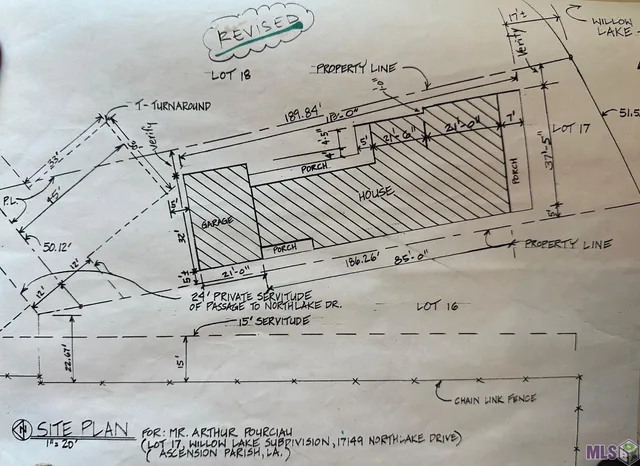 REVISED
17'±
WILLOW
LAKE
Verify
LOT 18
PROPERTY LINE
T-TURNAROUND
189.84'
21'-6"
21'-0"
7'
LOT 17
51.5
37'-5"
4'-5"
Verify
PORCH
HOUSE
PORCH
P.L.
45'
50.12'
GARAGE
32'
PORCH
21'-0"
186.26'
85'-0"
PROPERTY LINE
12'
12'
24' PRIVATE SERVITUDE
OF PASSAGE TO NORTHLAKE DR.
LOT 16
15' SERVITUDE
22.67'
15'
CHAIN LINK FENCE
N
SITE PLAN
1" = 20'
FOR: MR. ARTHUR POURCIAU
(LOT 17, WILLOW LAKE SUBDIVISION, 17149 NORTHLAKE DRIVE)
(ASCENSION PARISH, LA.)
MLS